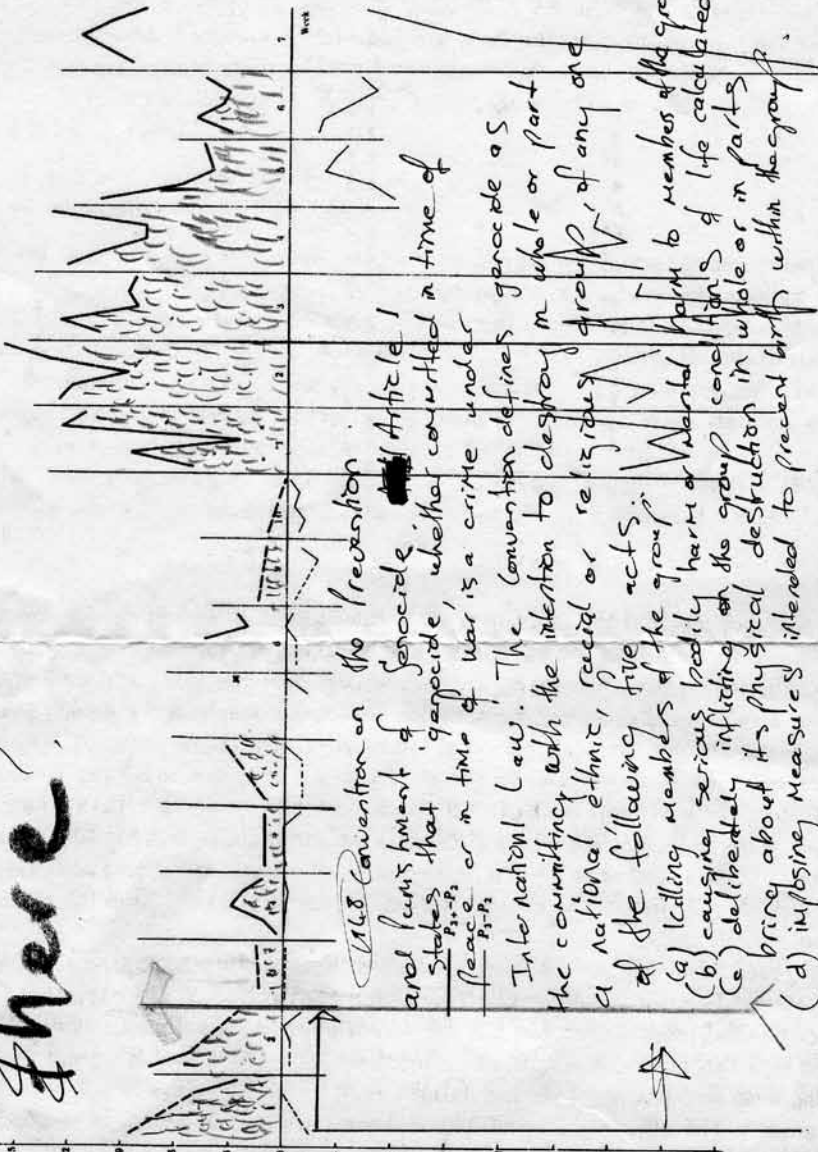 there
1948 Convention on the Prevention
and Punishment of Genocide. Article 1
states that genocide, whether committed in time of
peace or in time of war, is a crime under
P3+P2
P3-P2
International Law. The Convention defines genocide as
the committing with the intention to destroy in whole or part
a national ethnic, racial or religious group, of any one
of the following five acts.
(a) Killing members of the group.
(b) causing serious bodily harm or mental harm to members of the
(c) deliberately inflicting on the group conditions of life calculated
bring about its physical destruction in whole or in parts
(d) imposing measures intended to prevent births within the group.
Week